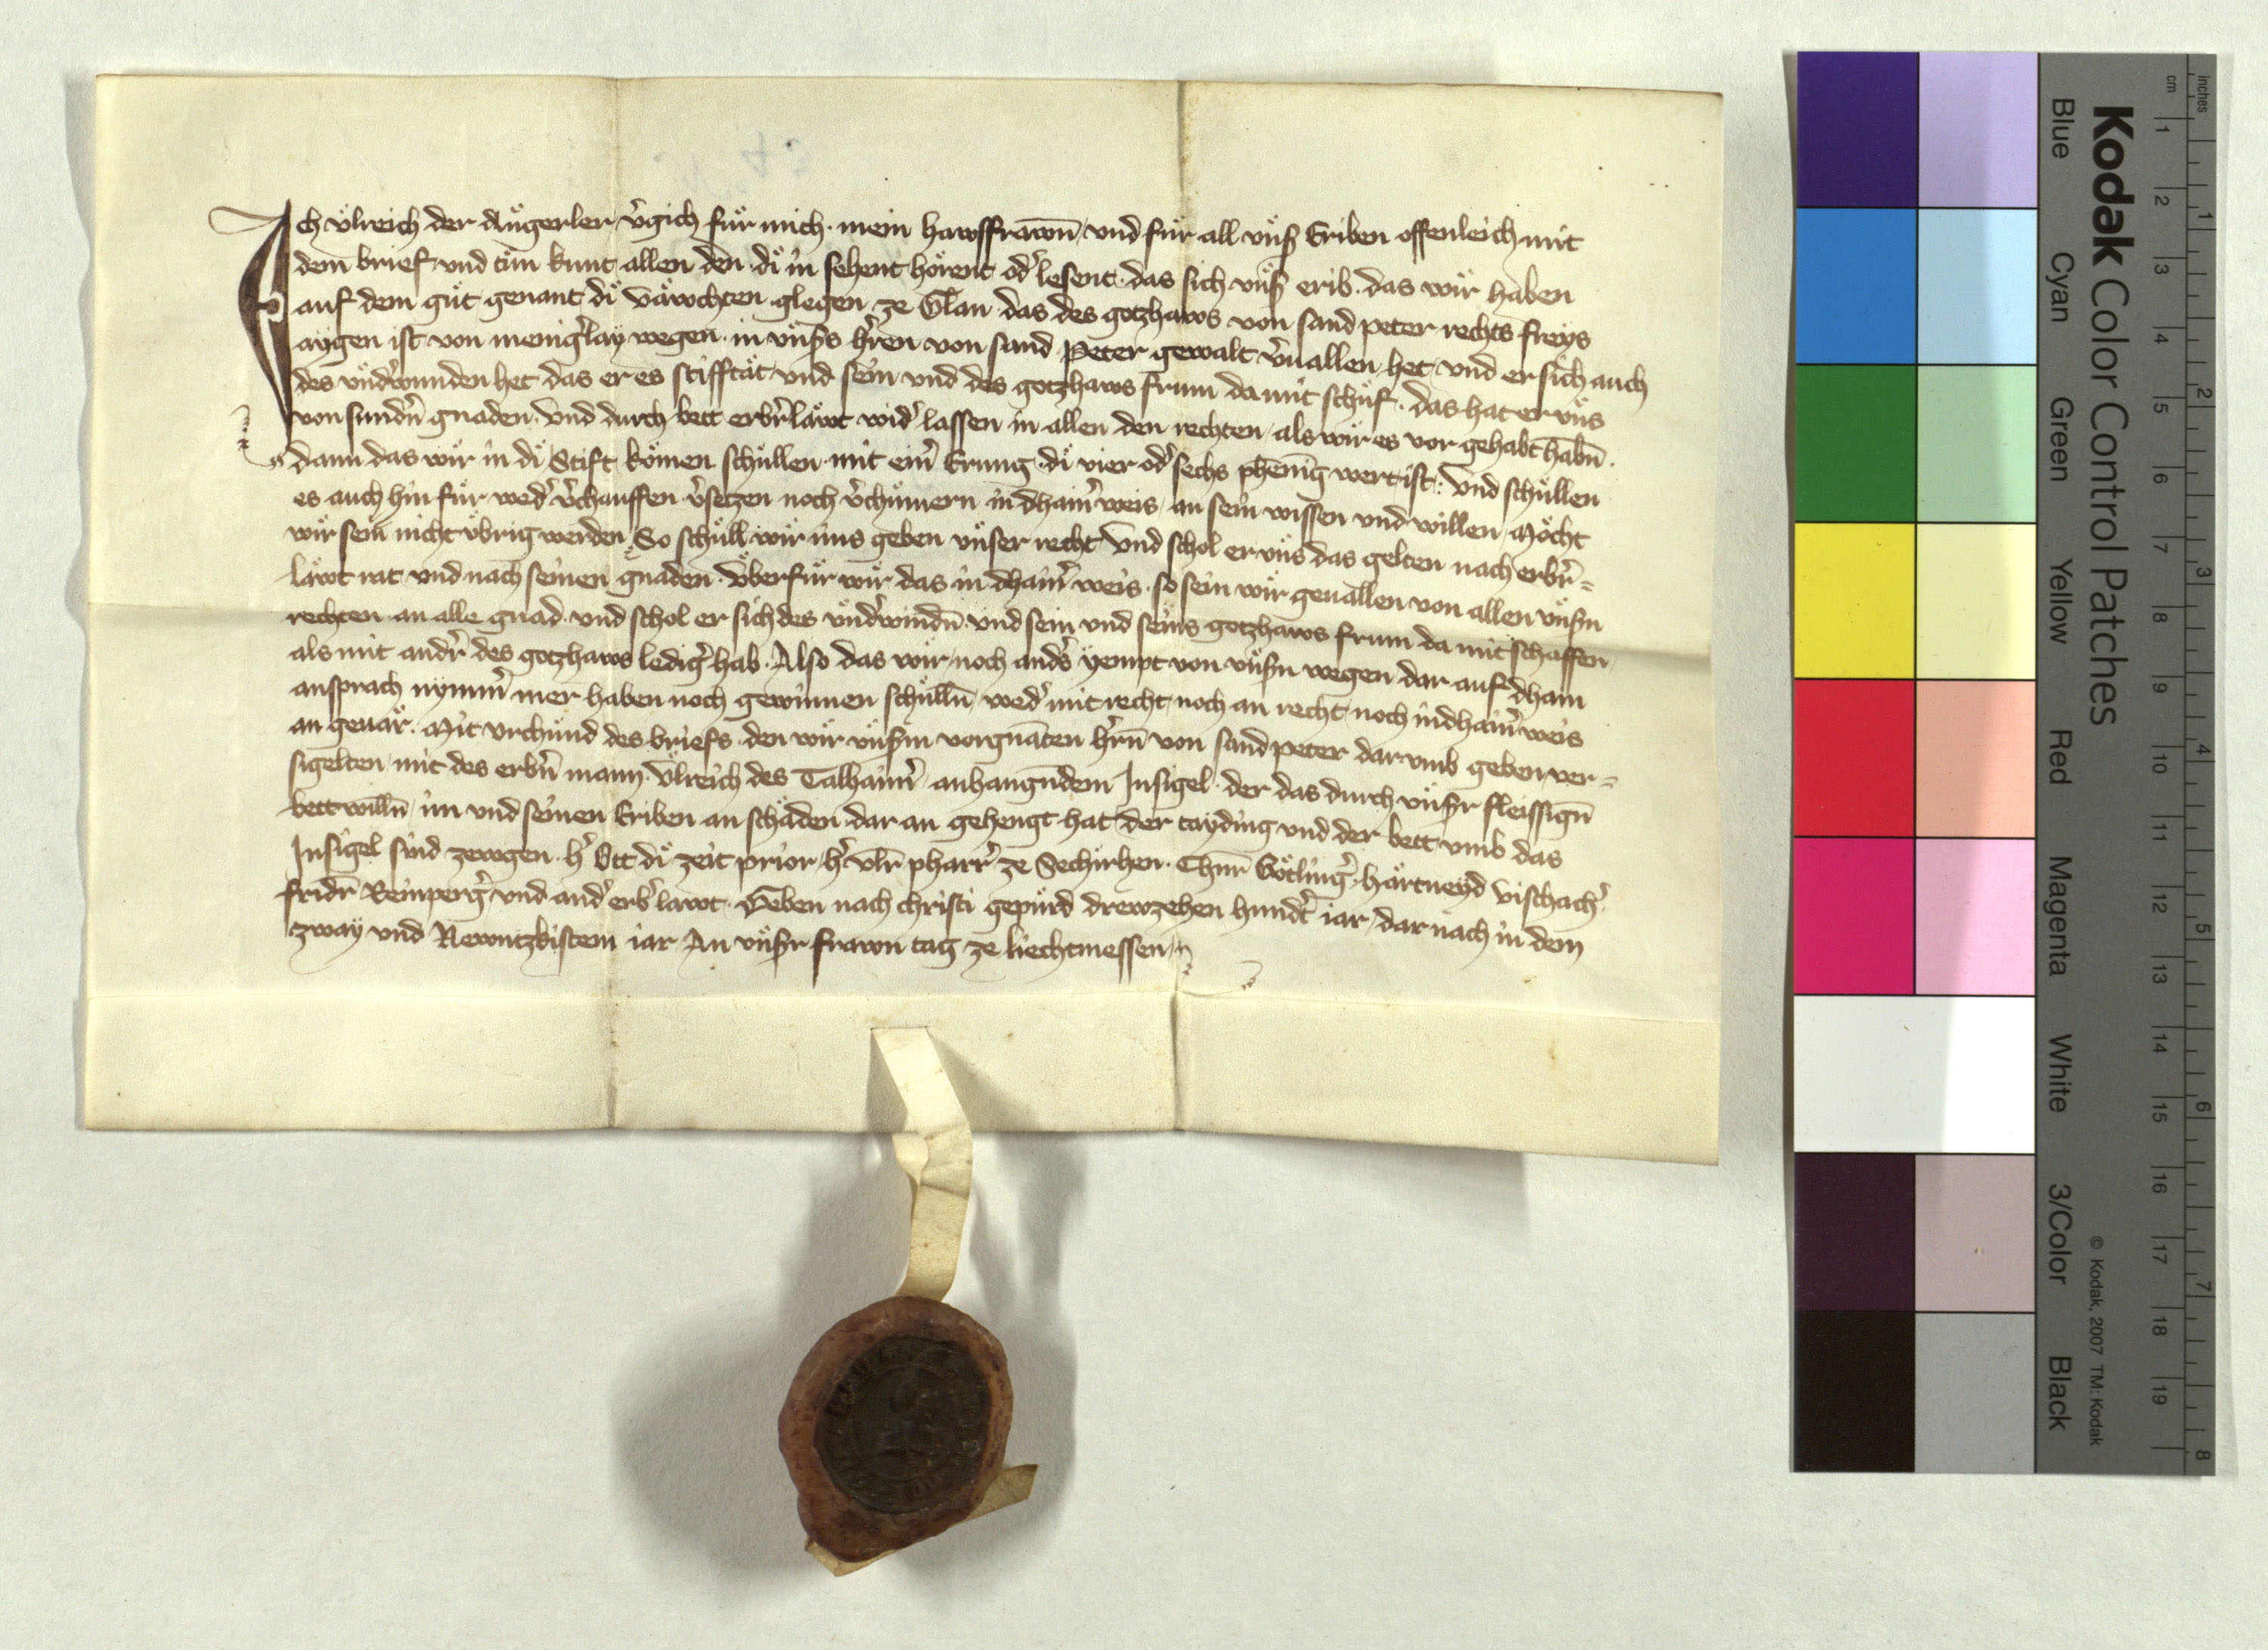 Ich Ulreich der Angerler v̓gich für mich · mein hawsffrawn̄ und für all unsß Eriben offenleich mit
dem brief und tün kunt allen den di in sehent hörent od̓ lesent · das sich unsß erib · das wir haben
auf dem güt genant di Väwchten glegen ze Glan das des gotzhaws von sand peter rechts freys
aygen ist von menig̓lay wegen · in unsßs h̓ren von sand Peter gewalt v̓uallen het und er sich auch
des und̓wunden het das er es stifftät und sein und des gotzhaws frum da mit schüf · das hat er uns
von sundn̓ gnaden · Und durch bett erbr̓ läwt wid̓ lassen in allen den rechten als wir es vor gehabt habn̄ ·
dann das wir in di Stift kömen schüllen mit eim̓ Erung · di vier od̓ sechs phenīg wert ist : Und schüllen
es auch hin für wed̓ v̓chauffen v̓setzen noch v̓chümern in dhaim̓ weis an sein wissen und willen Möcht
wir sein nicht übrig werden So schüll wir ims geben unser recht Und schol er uns das gelten nach erbr̓ =
läwt rat und nach seinen gnaden · Überfür wir das in dhaim̓ weis · so sein wir geuallen von allen unsßn
rechten an alle gnad · und schol er sich des und̓windn̄ und sein und seins gotzhaws frum da mit schaffen
als mit andr̓ des gotzhaws ledig̓ hab · Also das wir noch and̓s yempt von unsßn wegen dar auf dham
ansprach nymm̓ mer haben noch gewinnen schülln̄ wed̓ mit recht noch an recht noch in dhaim̓ weis
an geuär · Mit urchünd des briefs den wir unsßm vorgnāten h̓rn̄ von sand peter dar umb geben ver =
sigelten mit des erbn̓ mann Ulreich des Talhaim̓ anhangundem Insigel · der das durch unsßr fleissign̄
bett willn̄ im und seinen Eriben an schäden dar an gehengt hat der tayding und der bett umb das
Insigel sind zewgen · h̓ Ott di zeit prior · h̓ ulr̄ pharr̓ ze Sechirhen · Chunr̄ Götling̓ · Härtneyd Vischach̓
fridr̄ Reinperg̓ und and̓ erb̓ läwt · Geben nach christi gepürd drewzehen hundt̓ iar dar nach in dem
zway und Newntzkistem iar An unsßr frawn tag ze liechtmessen
Kodak Color Control Patches
Blue Cyan Green Yellow Red Magenta White 3/Color Black
© Kodak, 2007 TM: Kodak
cm 1 2 3 4 5 6 7 8 9 10 11 12 13 14 15 16 17 18 19
inches 1 2 3 4 5 6 7 8